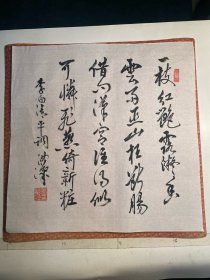 一枝紅艷露凝香
雲雨巫山枉斷腸
借問漢宮誰得似
可憐飛燕倚新粧
李白清平調